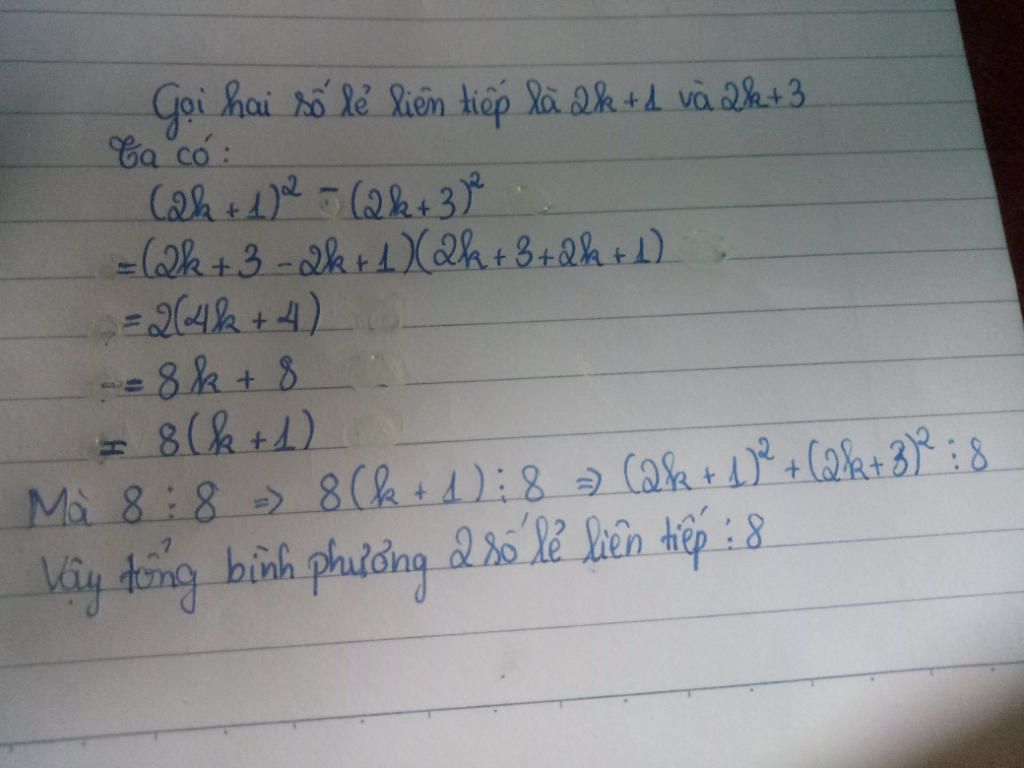 Gọi hai số lẻ liên tiếp là 2k+1 và 2k+3
Ta có:
(2k+1)² - (2k+3)²
=(2k+3-2k+1)(2k+3+2k+1)
=2(4k+4)
= 8k + 8
= 8(k+1)
Mà 8 ⋮ 8 => 8(k+1) ⋮ 8 => (2k+1)² + (2k+3)² ⋮ 8
Vậy tổng bình phương 2 số lẻ liên tiếp ⋮ 8